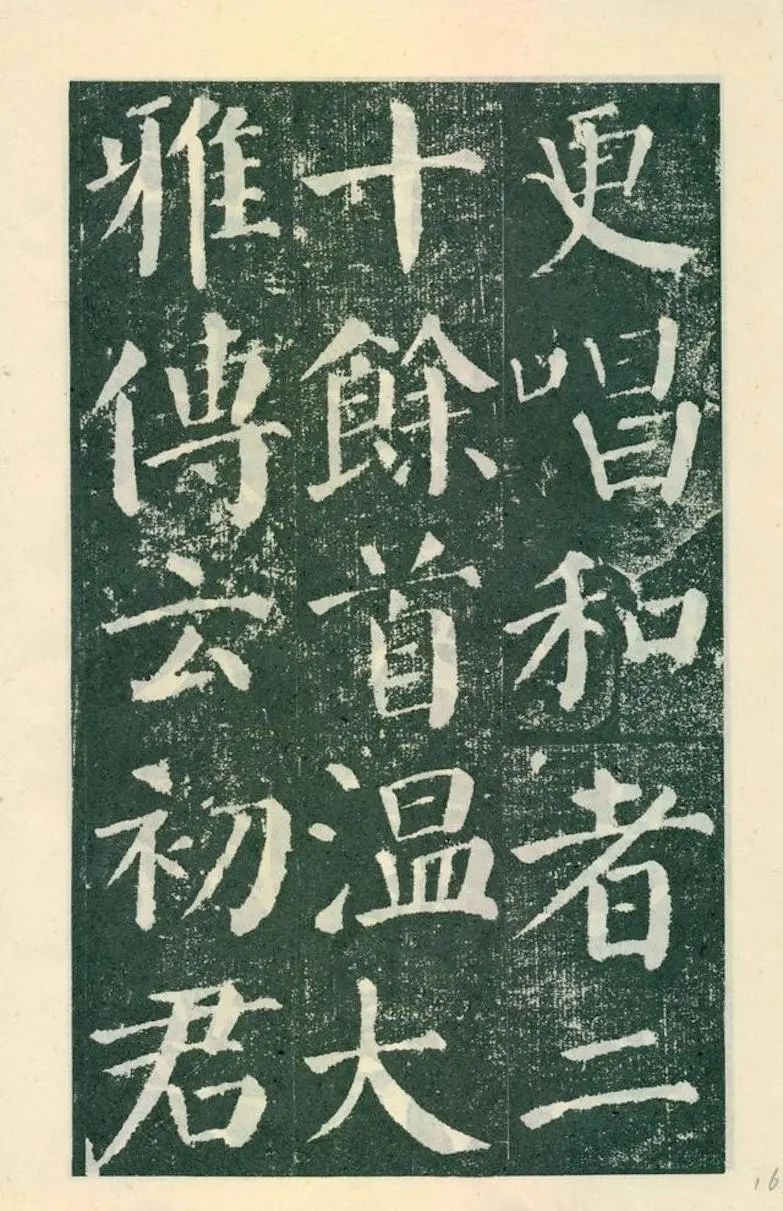 更唱和者二
十餘首温大
雅傳云初君
16